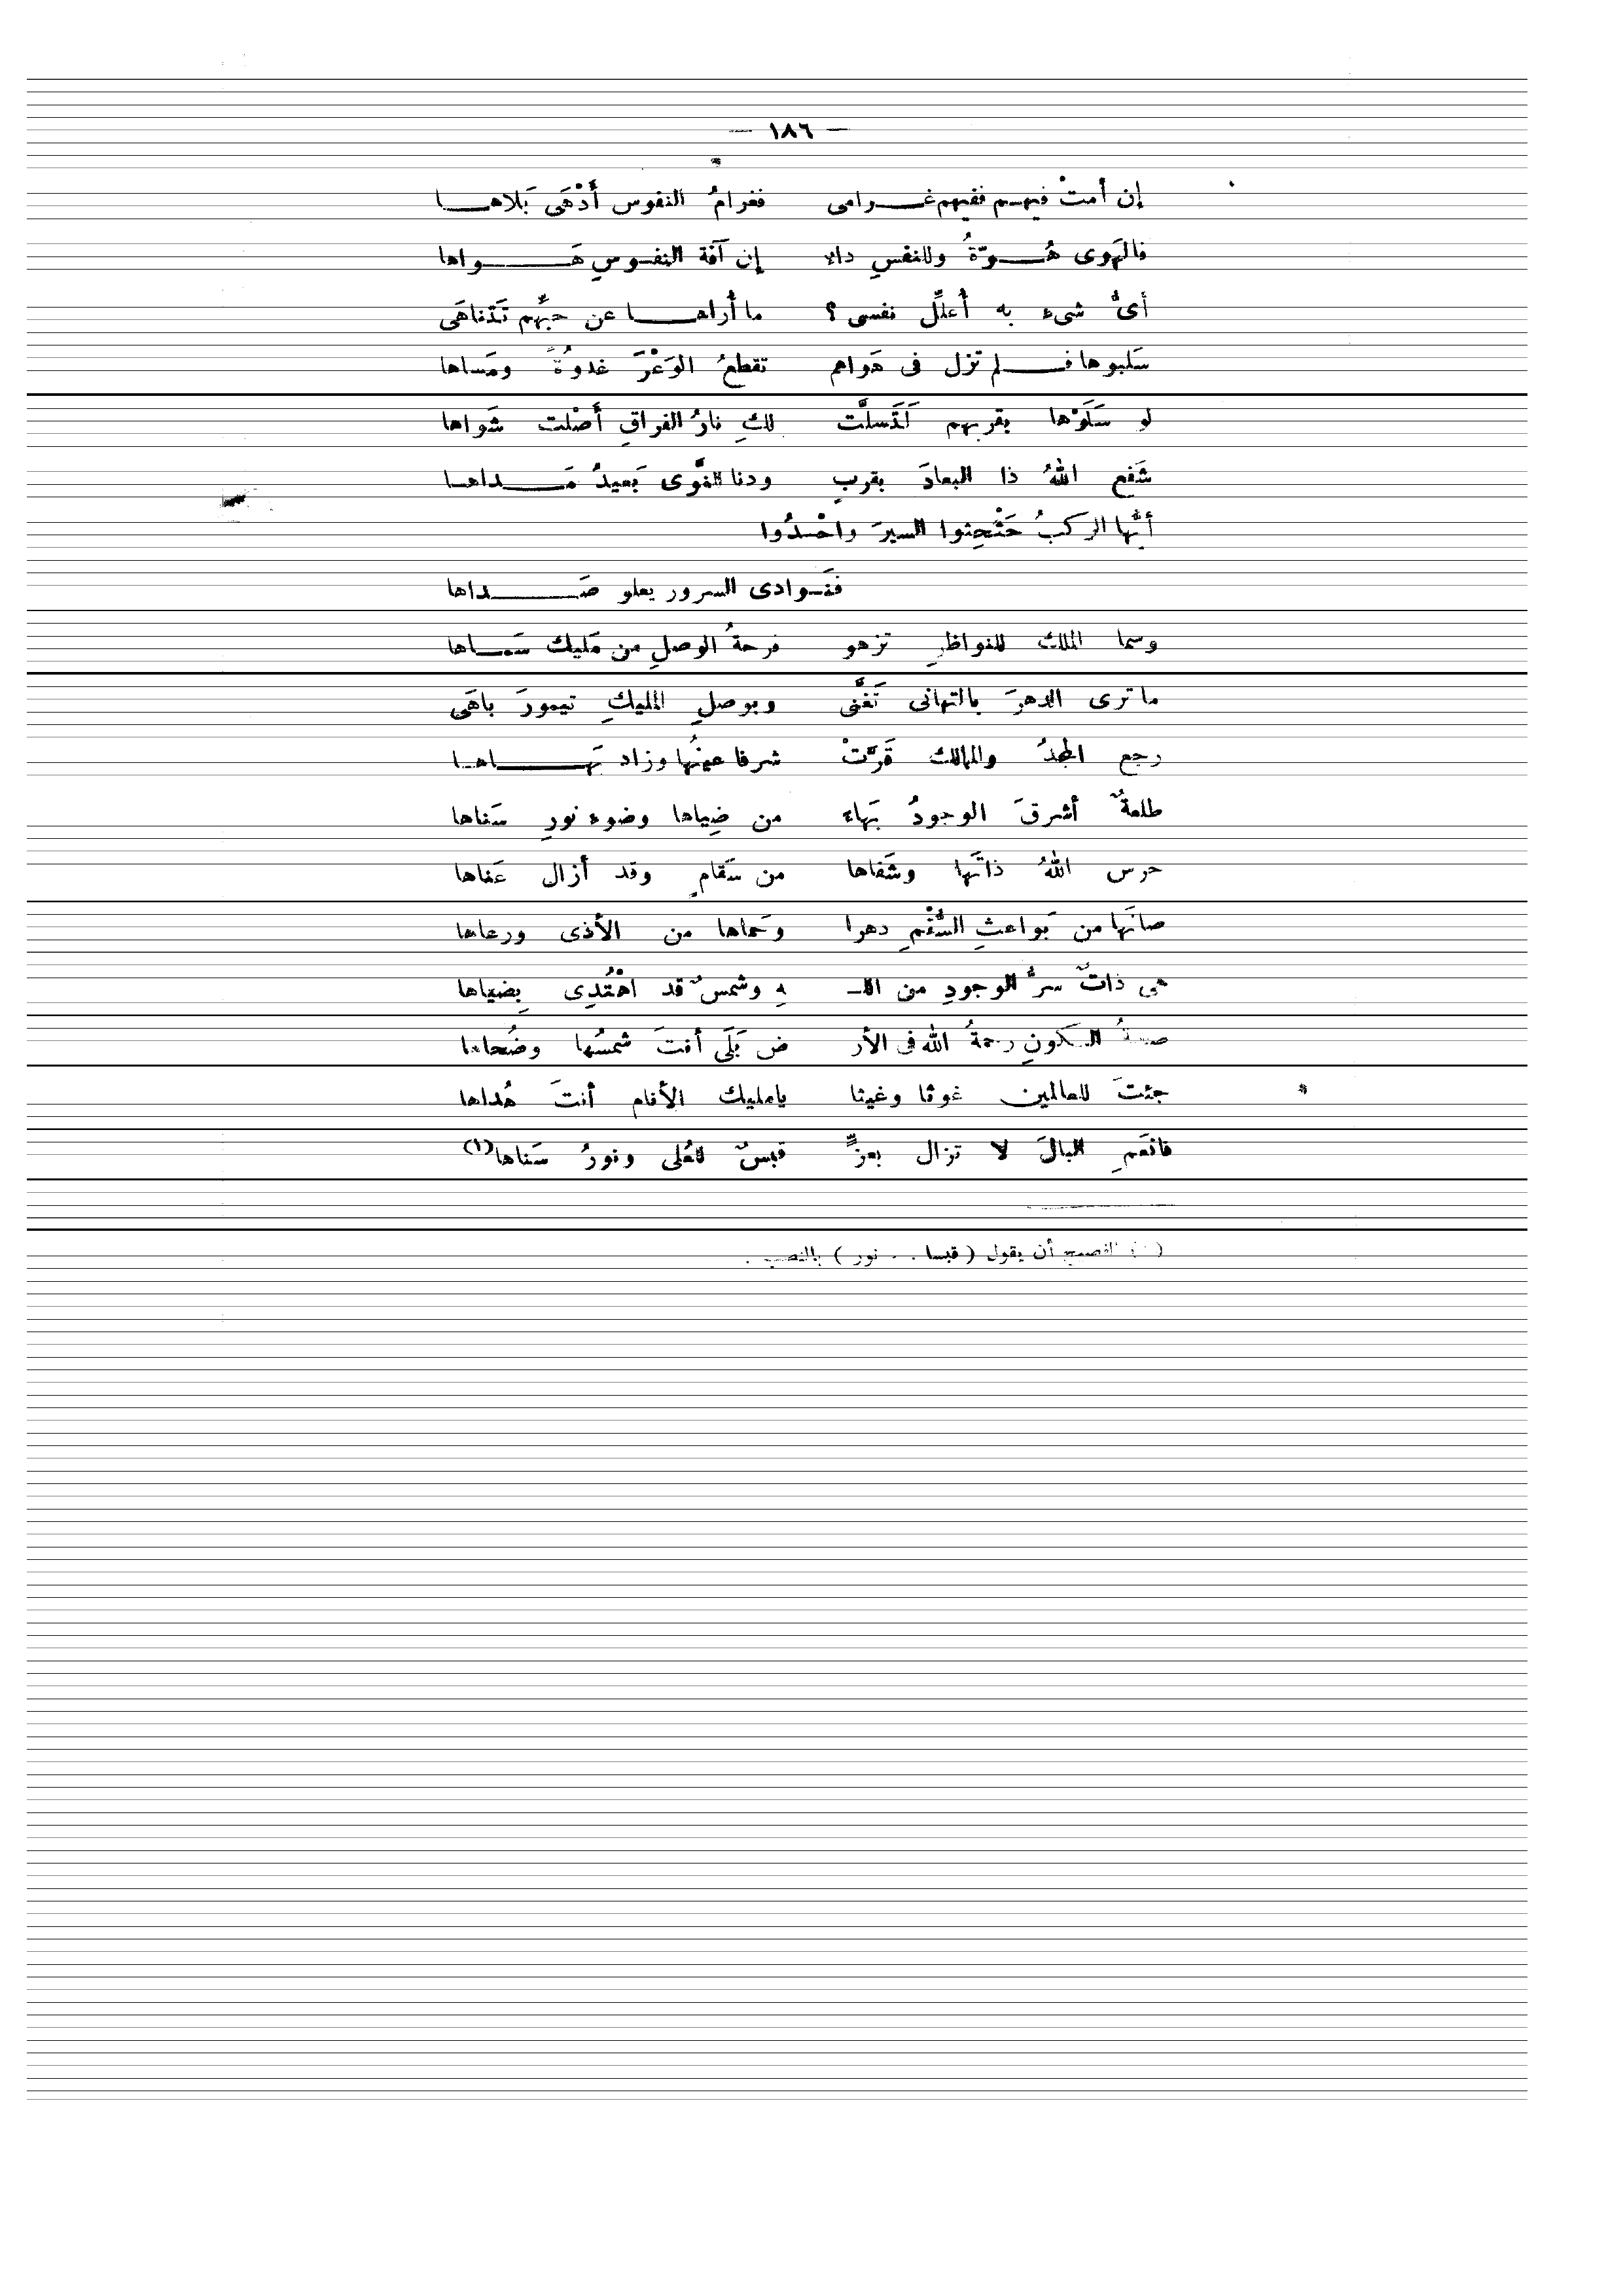 — ١٨٦ —
إن أمتْ فيهـم ففيهم غـــرامى فغرامُ النفوس أَدْهَى بَلاهـــا
فالهَوى هُـــوّةُ وللنفسِ داء إن آفة النفـوسِ هَـــواها
أىُّ شىء به أُعلِّل نفسى ؟ ما أُراهـــا عن حبِّهم تَتَناهَى
سَلبوها فـــلم تزل فى هَواهم تقطعُ الوَعْرَ غدوُةً ومَساها
لو سَلَوْها بقربهم لَتَسلَّت لكِ نارُ الفراقِ أَصْلت شَواها
شَفع اللهُ ذا البعادَ بقربٍ ودنا للنَّوى بَعيدُ مَـــداهـا
أيُّها الركبُ حَثْحِثوا السيرَ واحْـدُوا
فنَـوادى السرور يعلو صَـــداها
وسما الملك للنواظرِ تزهو فرحةُ الوصلِ من مَليك سَمـاها
ما ترى الدهرَ بالتهانى تَغَنَّى وبوصلِ المليكِ تيمورَ باهَى
رجع المجدُ والممالك قَرَّتْ شرفا عينُها وزاد بَهـــاهـا
طلعةٌ أشرقَ الوجودُ بَهاء من ضِياها وضوء نورِ سَناها
حرس اللهُ ذاتَها وشَفاها من سَقامٍ وقد أزال عَناها
صانَها من بَواعثِ السُّقْمِ دهرا وحَماها من الأذى ورعاها
هى ذاتٌ سرُّ الوجودِ من اللـ ـهِ وشمسٌ قد اهْتُدِى بِضياها
الكونِ رحمةُ الله فى الأر ض بَلَى أنتَ شمسُها وضُحاها
جئتَ للعالمين غوثا وغيثا يا مليك الأنام أنتَ هُداها
فانعَمِ البالَ لا تزال بعزٍّ قبسٌ للعُلى ونورُ سَناها(١)
(١) الفصيح أن يقول ( قبسا . . نور ) بالنصب .